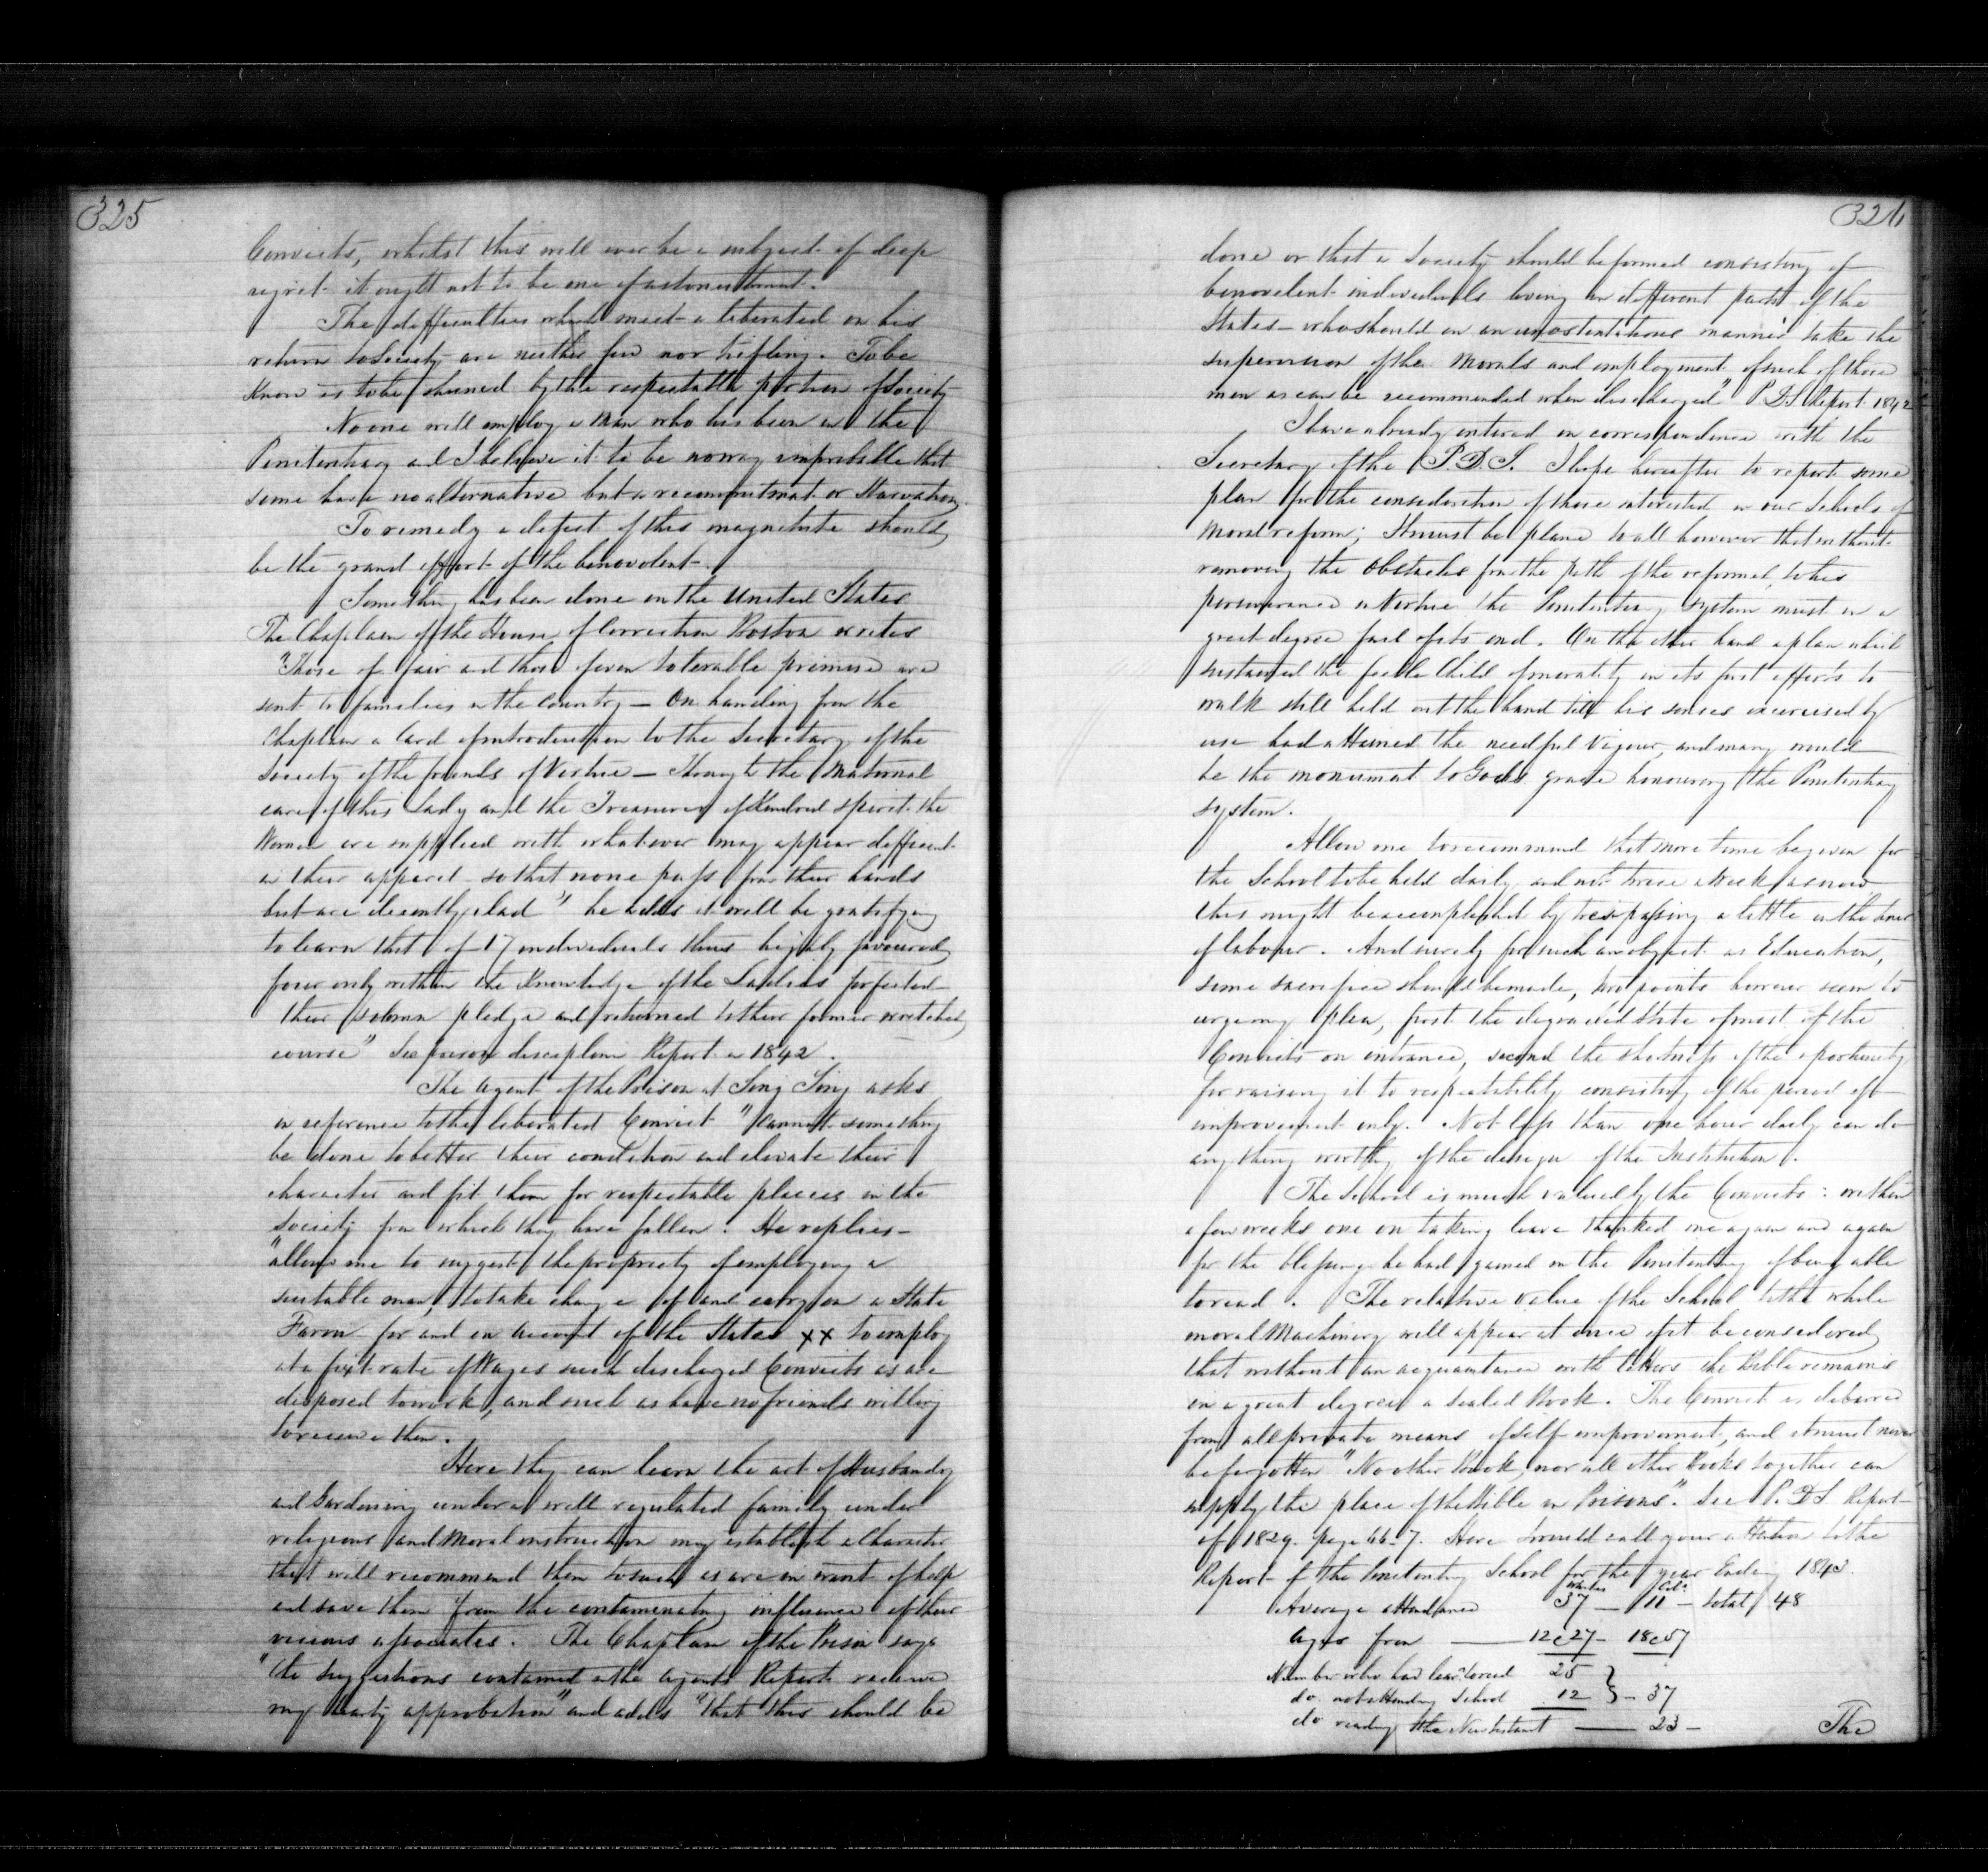 325
Convicts, whilst this will ever be a subject of deep
regret it ought not to be one of astonishment.
The difficulties which meet a liberated on his
return to Society are neither few nor trifling. To be
Known is to be shunned by the respectable portion of Society
No one will employ a Man who has been in the
Penitentiary and I believe it to be noway improbable that
some have no alternative but a recommitment or Starvation.
To remedy a defect of this magnitude should
be the grand effort of the benevolent.
Something has been done in the United States
The Chaplain of the House of Correction Boston writes
"Those of fair and those of even tolerable promise are
sent to families in the Country — On handing from the
Chaplain a Card of introduction to the Secretary of the
Society of the friends of Virtue — Through the Maternal
care of this Lady and the Treasurer of Kindred spirit the
Women are supplied with whatever may appear defficient
in their apparel so that none pass from their hands
but are decently clad" he adds it will be gratifying
to learn that of 17 individuals thus highly favoured
four only within the Knowledge of the Ladies forfeited
their solemn pledge and returned to their former wretched
course" See prison discipline Report in 1842.
The Agent of the Prison at Sing Sing asks
in reference to the liberated Convict "Cannot something
be done to better their condition and elevate their
character and fit them for respectable places in the
Society from which they have fallen. He replies —
"allow me to suggest the propriety of employing a
suitable man, to take charge of and carry on a State
Farm for and on account of the States xx to employ
at a fixt rate of Wages such discharged Convicts as are
disposed to work, and such as have no friends willing
to receive them.
Here they can learn the art of Husbandry
and Gardening under a well regulated family under
religious and Moral instruction may establish a Character
that will recommend them to such as are in want of help
and save them from the contaminating influence of their
vicious associates. The Chaplain of the Prison says
"the suggestions contained in the Agents Report receive
my hearty approbation" and adds "that this should be
326
done or that a Society should be formed consisting of
benevelent individuals living in different parts of the
States — who should in an unostentatious manner take the
supervision of the Morals and employment of such of those
men as can be recommended when discharged" P.D.S. Report 1842
I have already entered on correspondence with the
Secretary of the P.D.S. I hope hereafter to report some
plan for the consideration of those interested in our Schools of
Moral reform; It must be plane to all however that without
removing the Obstacles from the path of the reformed, to his
perseverance in Virtue the Penitentiary system must in a
great degree fail of its end. On the other hand a plan which
sustained the feeble Child of morality in its first efforts to
walk still held out the hand till his senses exercised by
use had attained the needful Vigour, and many would
be the monument to Gods grace honouring the Penitentiary
system.
Allow me to recommend that more time be given for
the School to be held daily and not twice a Week as now
this might be accomplished by trespassing a little on the hours
of labour. And surely for such an object as Education,
some sacrifice should be made, two points however seem to
urge my plea, first the degraded State of most of the
Convicts on entrance, second the shortness of the oportunity
for raising it to respectability consisting of the period of
improvement only. Not less than one hour daily can do
any thing worthy of the design of the Institution.
The School is much valued by the Convicts: within
a few weeks one on taking leave thanked me again and again
for the blessing he had gained in the Penitentiary of being able
to read. The relative value of the School to the whole
moral Machinery will appear at once if it be considered
that without an acquaintance with letters the Bible remains
in a great degree a Sealed Book. The Convict is debarred
from all private means of self improvement, and it must never
be forgotten "No other Book, nor all other Books together can
supply the place of the Bible in Prisons". See P.D.S. Report
of 1829. page 66-7. Here I would call your attention to the
Report of the Penitentiary School for the year Ending 1843.
Whites Cold
Average attendance 37 — 11 — total 48
Ages from — 12 @ 27 — 18 @ 57
Number who have learnt to read 25
do. not attending School 12 } — 37
do reading the New Testament — 23 —
The